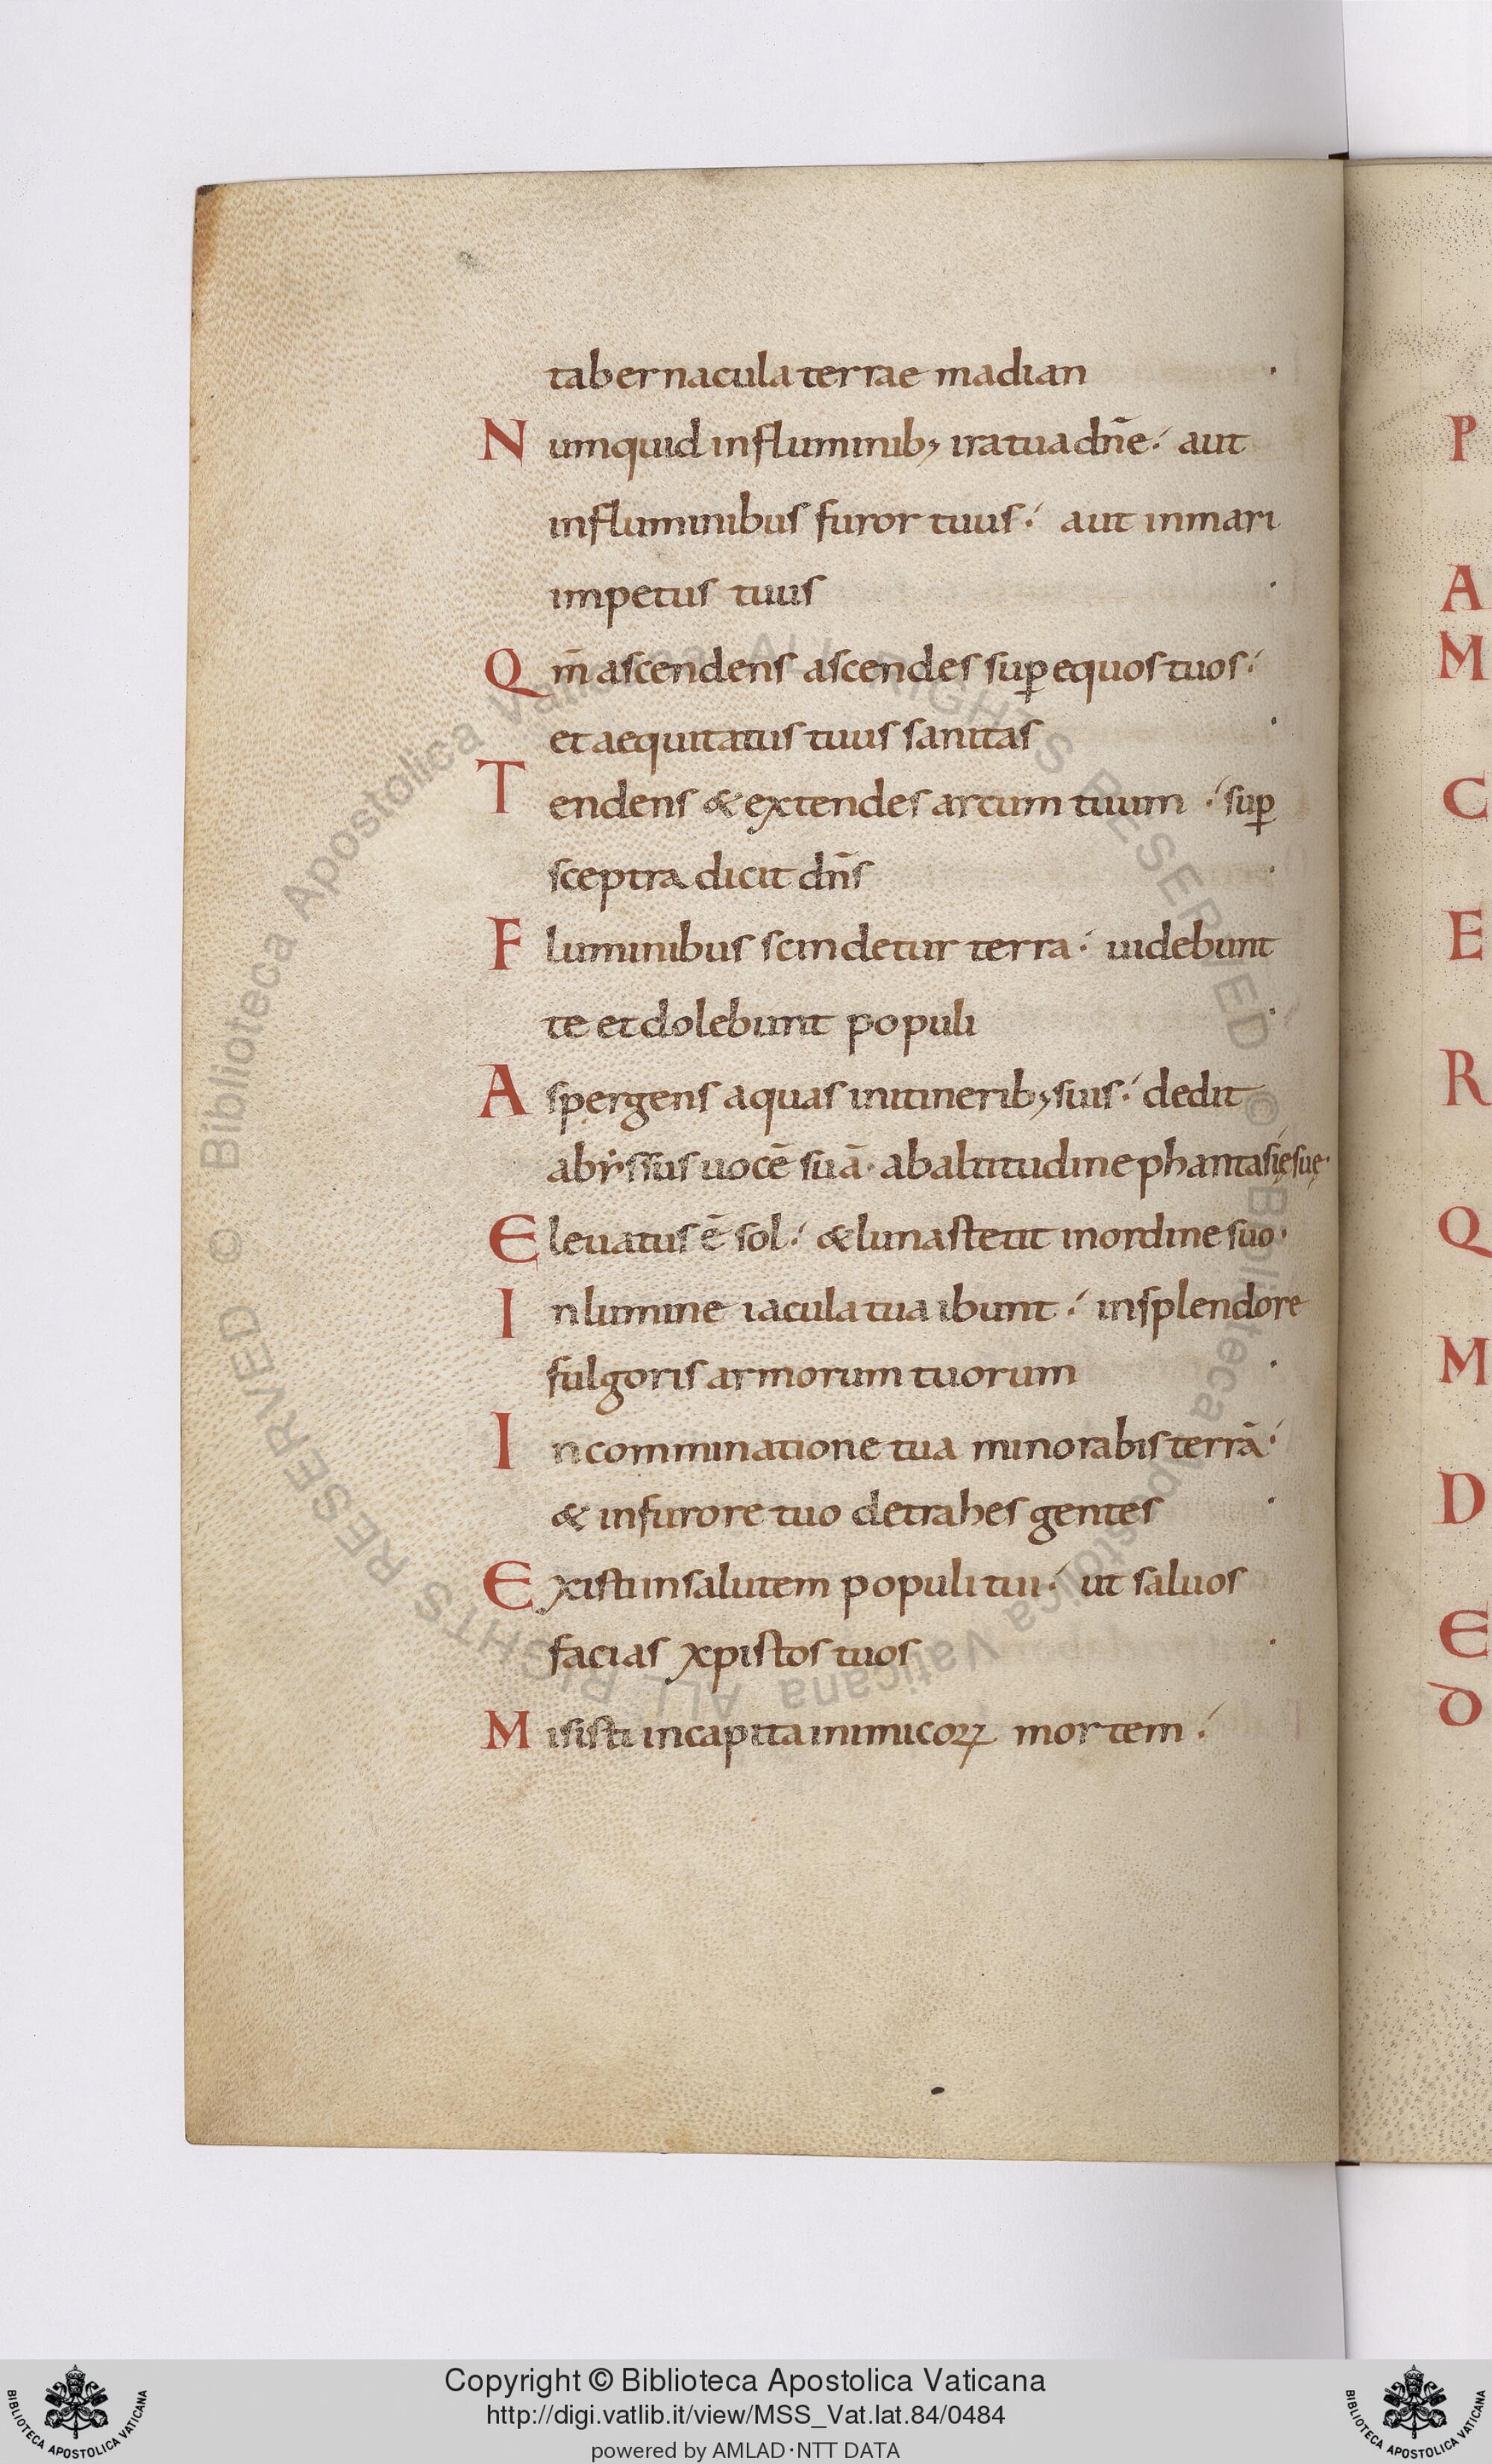 tabernacula terrae madian ·
Numquid in fluminib; ira tua dn̄e·́ aut
in fluminibus furor tuus·́ aut in mari
impetus tuus ·
Qm̄ ascendens ascendes sup̱ equos tuos·́
et aequitatus tuus sanitas ·
Tendens & extendes arcum tuum ·́ sup̱
sceptra dicit dn̄s ·
Fluminibus scindetur terra·́ uidebunt
te et dolebunt populi ·
Aspergens aquas in itinerib; suis·́ dedit
abẏssus uocē suā· ab altitudine phantasię suę·
Eleuatus ē sol·́ & luna stetit in ordine suo·
In lumine iacula tua ibunt·́ in splendore
fulgoris armorum tuorum ·
In comminatione tua minorabis terrā·́
& in furore tuo detrahes gentes ·
Existi in salutem populi tui·́ ut saluos
facias xpistos tuos ·
Misisti in capita inimicoꝝ mortem·́
P
A
M
C
E
R
Q
M
D
E
D
© Biblioteca Apostolica Vaticana ALL RIGHTS RESERVED © Biblioteca Apostolica Vaticana ALL RIGHTS RESERVED
Copyright © Biblioteca Apostolica Vaticana
http://digi.vatlib.it/view/MSS_Vat.lat.84/0484
powered by AMLAD·NTT DATA
BIBLIOTECA APOSTOLICA VATICANA
BIBLIOTECA APOSTOLICA VATICANA